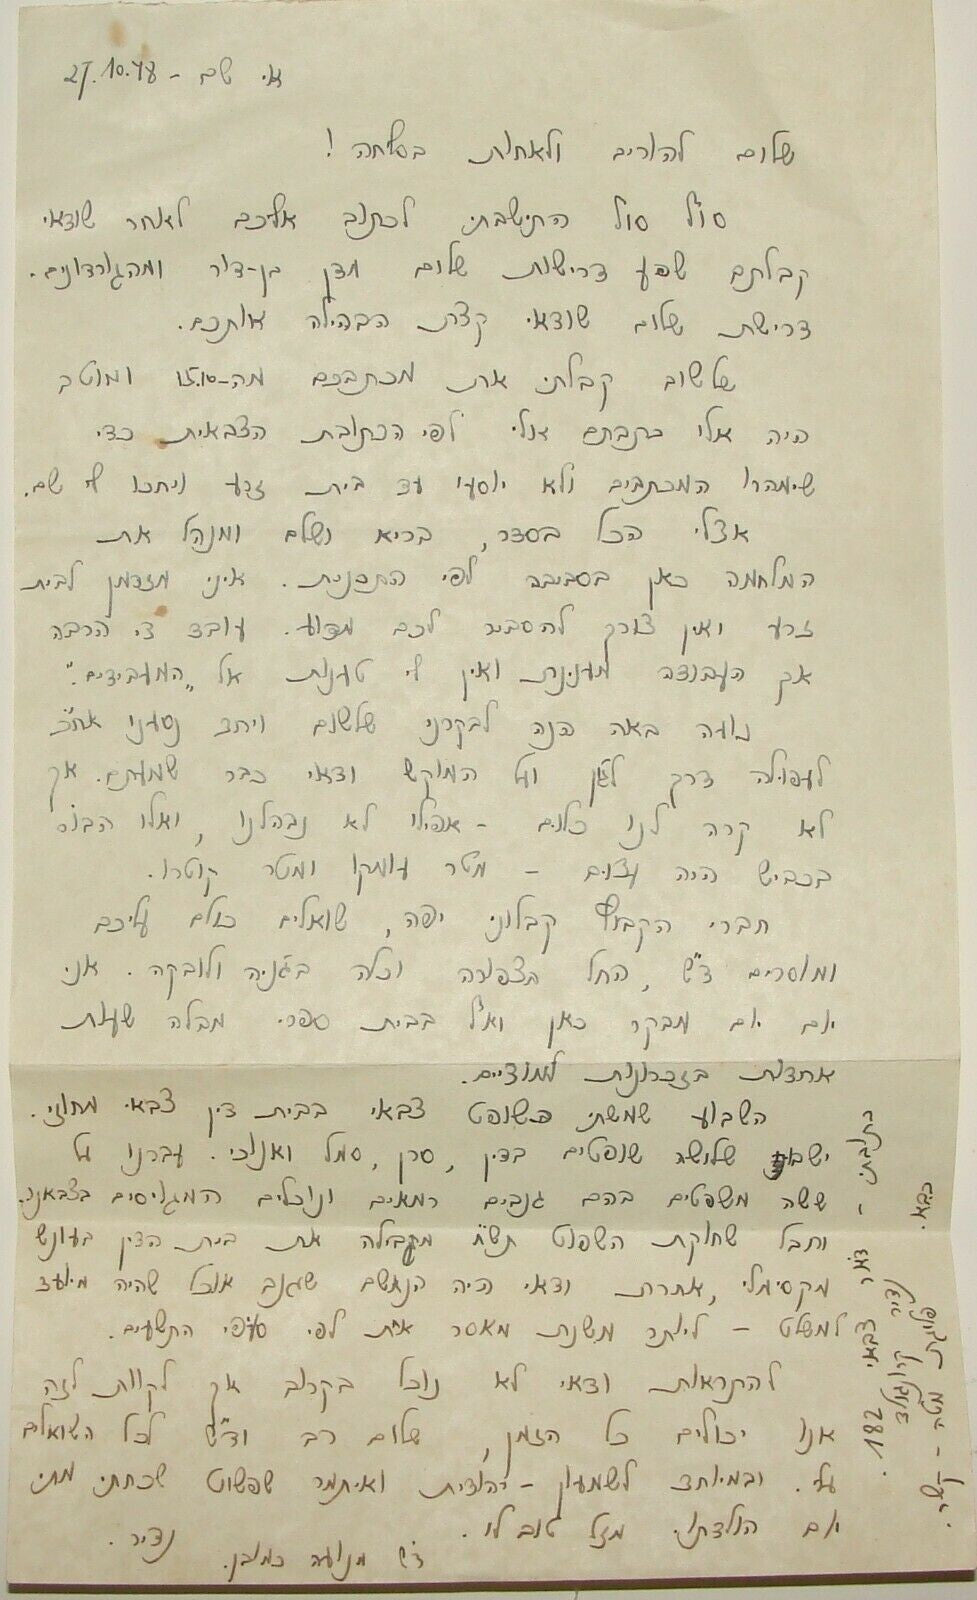 אי שם - 27.10.48
שלום להורים ולאחות בסליחה!
סו"ס סו"ס התישבתי לכתוב אליכם לאחר שודאי
קבלתם שפע דרישות שלום מדן בן-דור ומהגורדונים.
דרישת שלום שודאי קצת הבהילה אותכם.
שלשום קבלתי את מכתבכם מה-15.10 ומוטב
היה אלו כתבתם אלי לפי הכתובת הצבאית כדי
שימהרו המכתבים ולא יוסעו עד בית זרע ויחכו לי שם.
אצלי הכל בסדר, בריא ושלם ומנהל את
המלחמה כאן בסביבה לפי התכנית. איני מזדמן לבית
זרע ואין צורך להסביר לכם מדוע. עובד די הרבה
אך העבודה מענינת ואין לי טענות אל "המעבידים".
נועה באה הנה לבקרני שלשום ויחד נסענו אח"צ
לעפולה דרך לגון ועל המוקש ודאי כבר שמעתם. אך
לא קרה לנו כלום - אפילו לא נבהלנו, ואלו הבור
בכביש היה עצום - מטר עומקו ומטר קוטרו.
חברי הקבוץ קבלוני יפה, שואלים כולם עליכם
ומוסרים ד"ש, החל מצפורה וכלה בגניה ולובקה. אני
יום יום מבקר כאן ואצל בבית ספרי מבלה שעות
אחדות בזכרונות למודיים.
השבוע שמשתי כשופט צבאי בבית דין צבאי מחוזי.
ישבנו שלושה שופטים בדין, סרן, סמל ואנוכי. עברנו על
ששה משפטים בהם גנבים רמאים ונוכלים המגויסים בצבאנו.
וחבל שחוקת השפוט תש"ח מגבילה את בית הדין בעונש
מקסימלי, אחרת ודאי היה הנאשם שגנב אוכל שהיה מיועד
למשלט - ליותר משנת מאסר אחת לפי סעפי התשעים.
להתראות ודאי לא נוכל בקרוב אך לקוות לזה
אנו יכולים כל הזמן, שלום רב וד"ש לכל השואלים
עלי. ובמיוחד לשמעון - יהודית ואיתמר שפשוט שכחתי מתי
יום הולדתו. מזל טוב לו.
נדיר.
ד"ש מנועה כמובן.
כתובתי,
דאר צבאי 182.
נדיר
פלוגת מטה - קשר.
בבא.